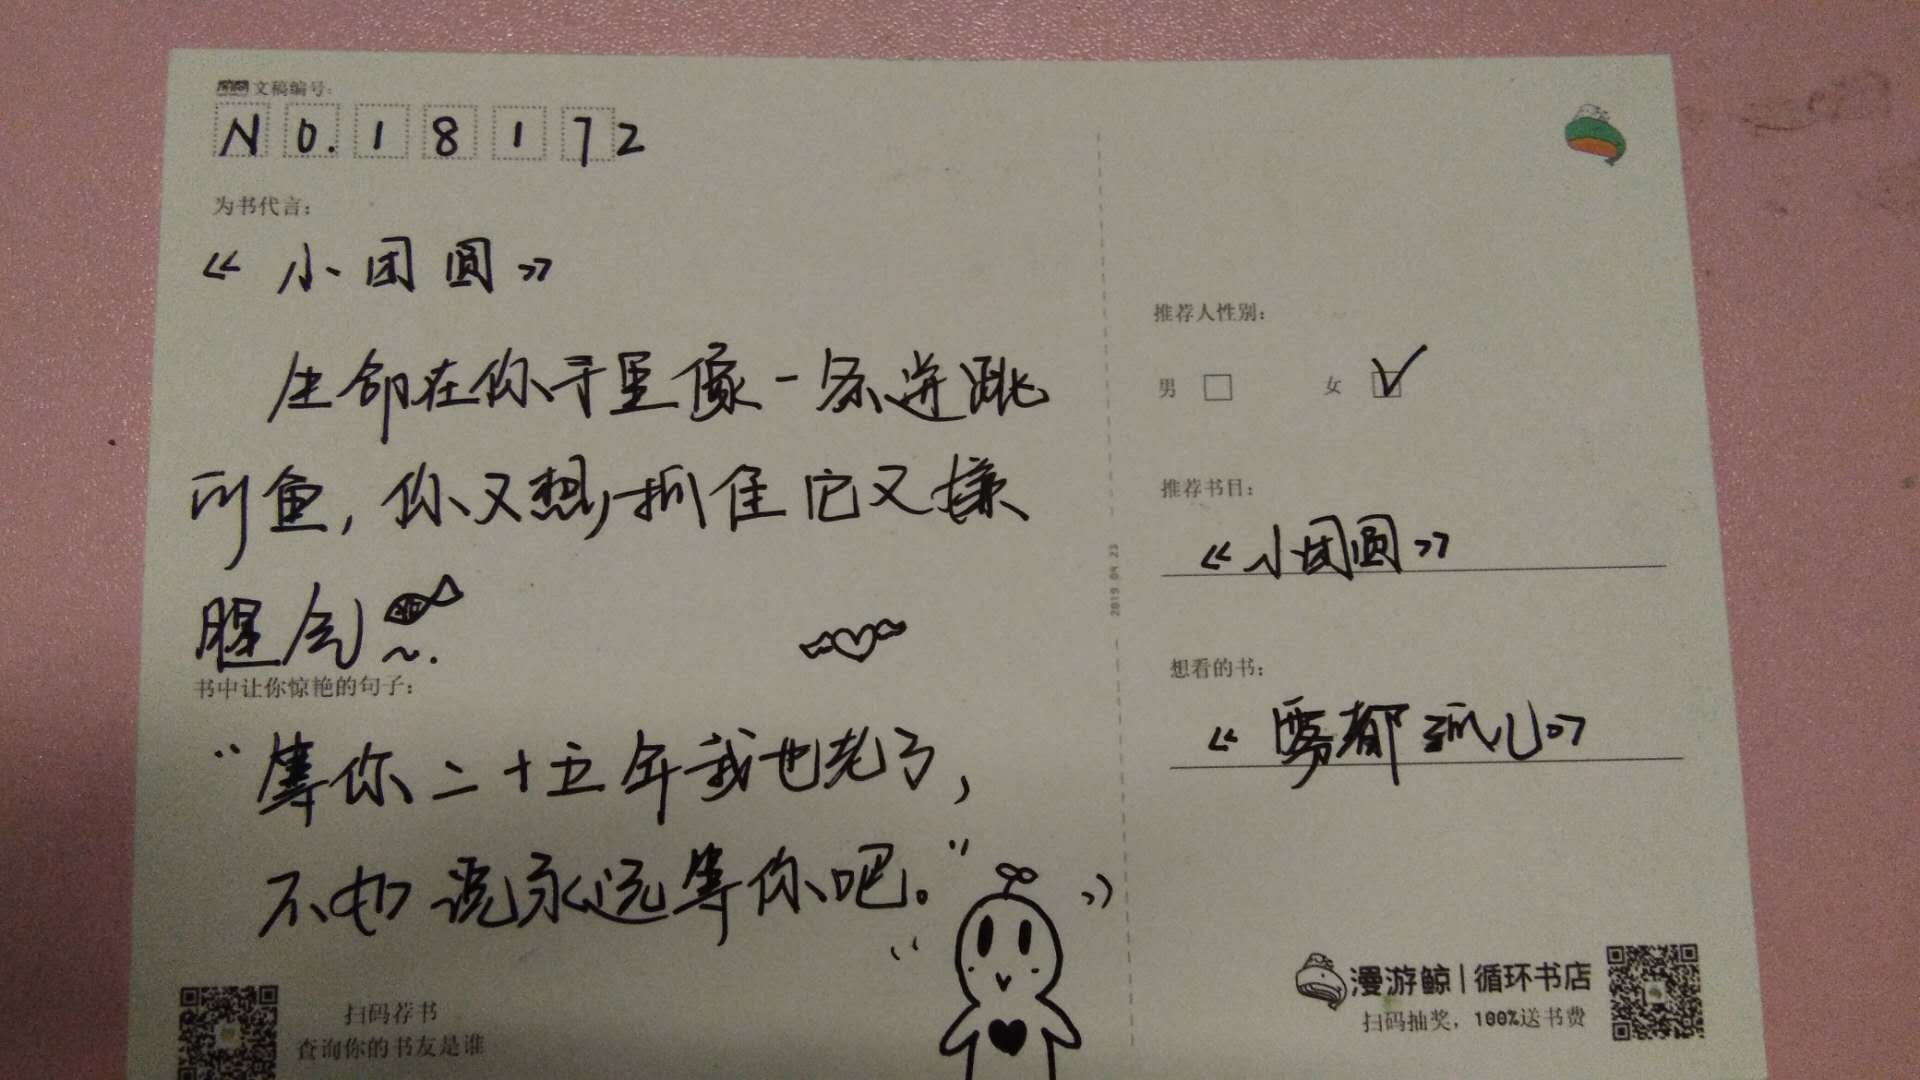 文稿编号:
NO.18172
为书代言:
《小团圆》
生命在你手里像一条迸跳
的鱼,你又想抓住它又嫌
腥气~.
书中让你惊艳的句子:
“等你二十五年我也老了,
不如说永远等你吧。”
扫码荐书
查询你的书友是谁
推荐人性别:
男 女
推荐书目:
《小团圆》
2019 04 23
想看的书:
《雾都孤儿》
漫游鲸|循环书店
扫码抽奖,100%送书费